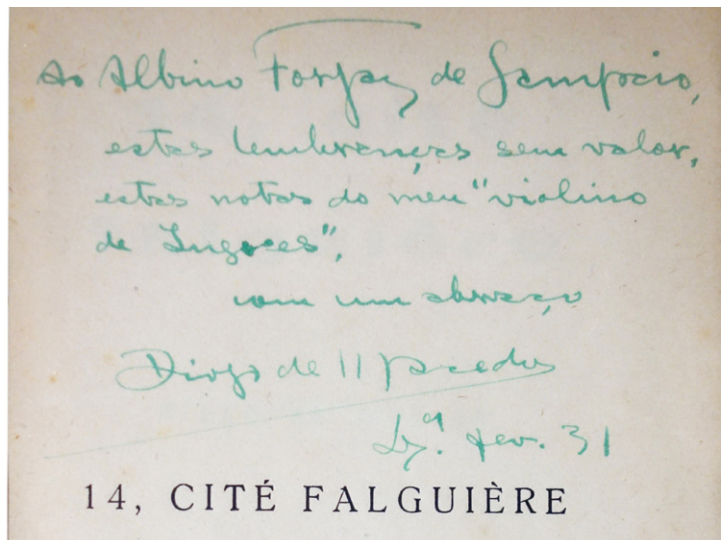 Ao Albino Forjaz de Sampaio,
estas lembranças sem valor,
estas notas do meu "violino
de Ingres",
com um abraço
Diogo de Macedo
Lxª. fev. 31
14, CITÉ FALGUIÈRE